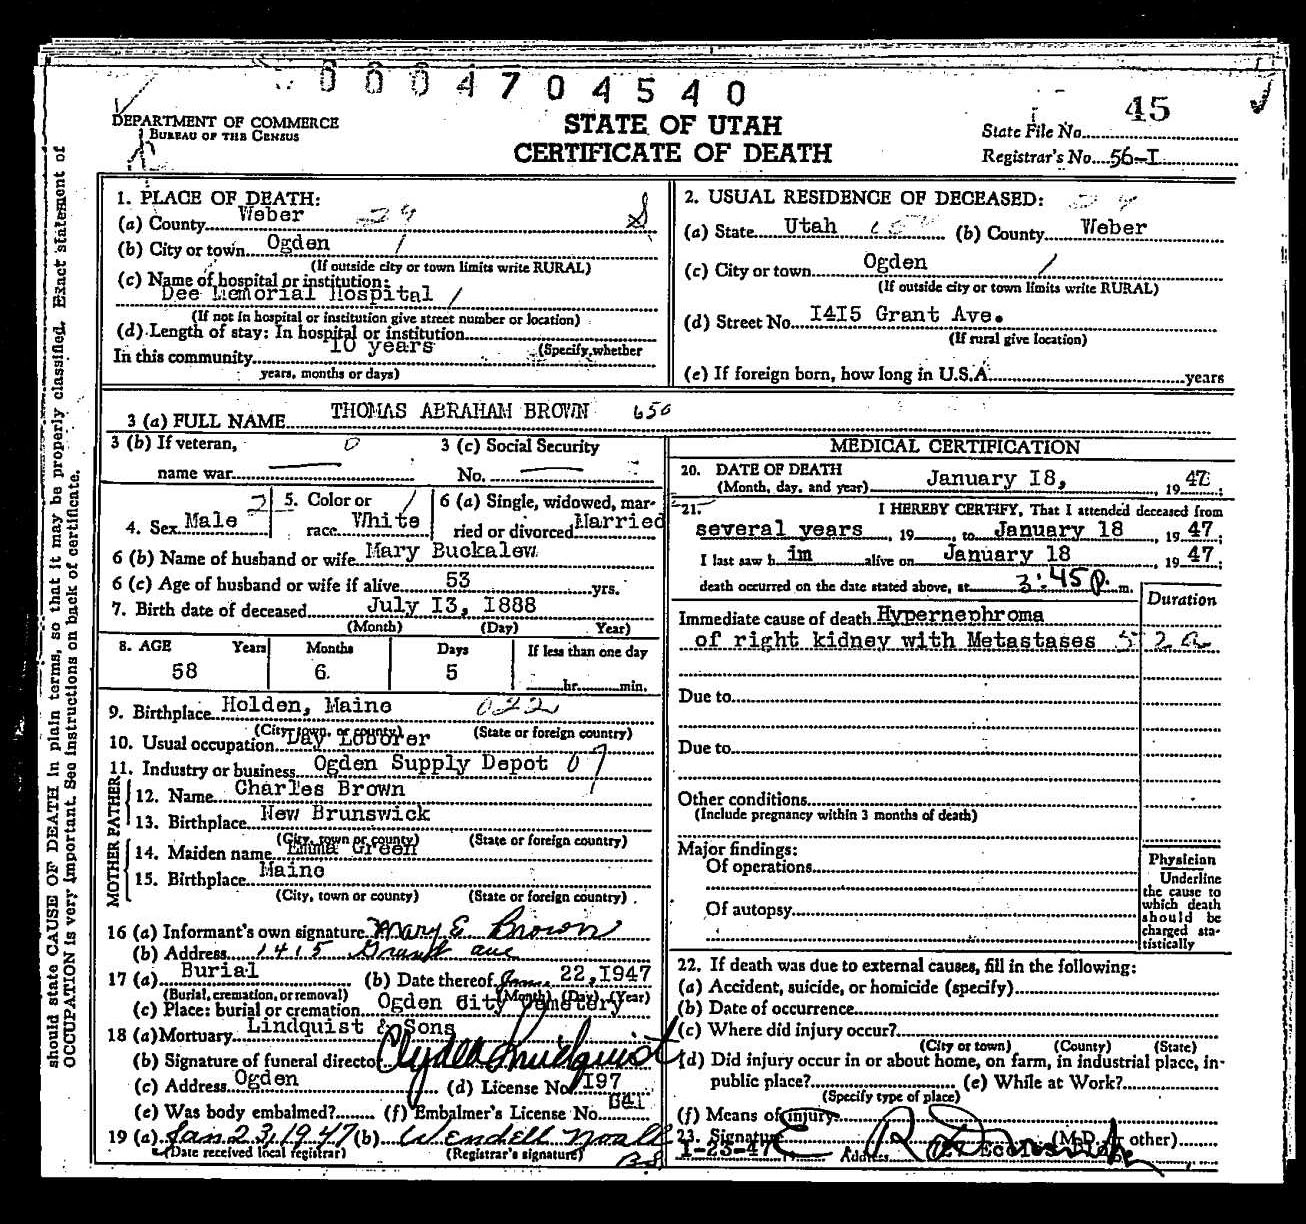 0004704540
DEPARTMENT OF COMMERCE
BUREAU OF THE CENSUS
STATE OF UTAH
CERTIFICATE OF DEATH
45
State File No.
Registrar's No. 56-I
should state CAUSE OF DEATH in plain terms, so that it may be properly classified. Exact statement of
OCCUPATION is very important. See instructions on back of certificate.
1. PLACE OF DEATH:
(a) County Weber
(b) City or town Ogden
(If outside city or town limits write RURAL)
(c) Name of hospital or institution:
Dee Memorial Hospital
(If not in hospital or institution give street number or location)
(d) Length of stay: In hospital or institution
In this community 10 years (Specify whether
years, months or days)
2. USUAL RESIDENCE OF DECEASED:
(a) State Utah (b) County Weber
(c) City or town Ogden
(If outside city or town limits write RURAL)
(d) Street No. I4I5 Grant Ave.
(If rural give location)
(e) If foreign born, how long in U.S.A. years
3 (a) FULL NAME THOMAS ABRAHAM BROWN 650
3 (b) If veteran, 0
name war
3 (c) Social Security
No.
4. Sex Male
5. Color or
race White
6 (a) Single, widowed, mar-
ried or divorced Married
6 (b) Name of husband or wife Mary Buckalew
6 (c) Age of husband or wife if alive 53 yrs.
7. Birth date of deceased July I3, I888
(Month) (Day) Year)
8. AGE Years Months Days If less than one day
58 6 5 hr. min.
9. Birthplace Holden, Maine 022
(City, town, or county) (State or foreign country)
10. Usual occupation Day Loborer
11. Industry or business Ogden Supply Depot 07
FATHER
12. Name Charles Brown
13. Birthplace New Brunswick
(City, town or county) (State or foreign country)
MOTHER
14. Maiden name Emma Green
15. Birthplace Maine
(City, town or county) (State or foreign country)
16 (a) Informant's own signature Mary E Brown
(b) Address 1415 Grant ave
17 (a) Burial (b) Date thereof Jan. 22, I947
(Burial, cremation, or removal) (Month) (Day) (Year)
(c) Place: burial or cremation Ogden City Cemetery
18 (a) Mortuary Lindquist & Sons
(b) Signature of funeral director Clyde Lindquist
(c) Address Ogden (d) License No. I97
(e) Was body embalmed? (f) Embalmer's License No. 641
19 (a) Jan 23, 1947 (b) Wendell Noall
(Date received local registrar) (Registrar's signature)
MEDICAL CERTIFICATION
20. DATE OF DEATH
(Month, day, and year) January I8, , 19 47 ;
21. I HEREBY CERTIFY, That I attended deceased from
several years , 19 , to January 18 , 19 47 ;
I last saw h im alive on January 18 , 19 47 ;
death occurred on the date stated above, at 3:45 p. m.
Duration
Immediate cause of death Hypernephroma
of right kidney with Metastases
Due to
Due to
Other conditions
(Include pregnancy within 3 months of death)
Major findings:
Of operations
Of autopsy
Physician
Underline
the cause to
which death
should be
charged sta-
tistically
22. If death was due to external causes, fill in the following:
(a) Accident, suicide, or homicide (specify)
(b) Date of occurrence
(c) Where did injury occur?
(City or town) (County) (State)
(d) Did injury occur in or about home, on farm, in industrial place, in-
public place? (e) While at Work?
(Specify type of place)
(f) Means of injury
23. Signature (M.D. or other)
1-23-47 Address